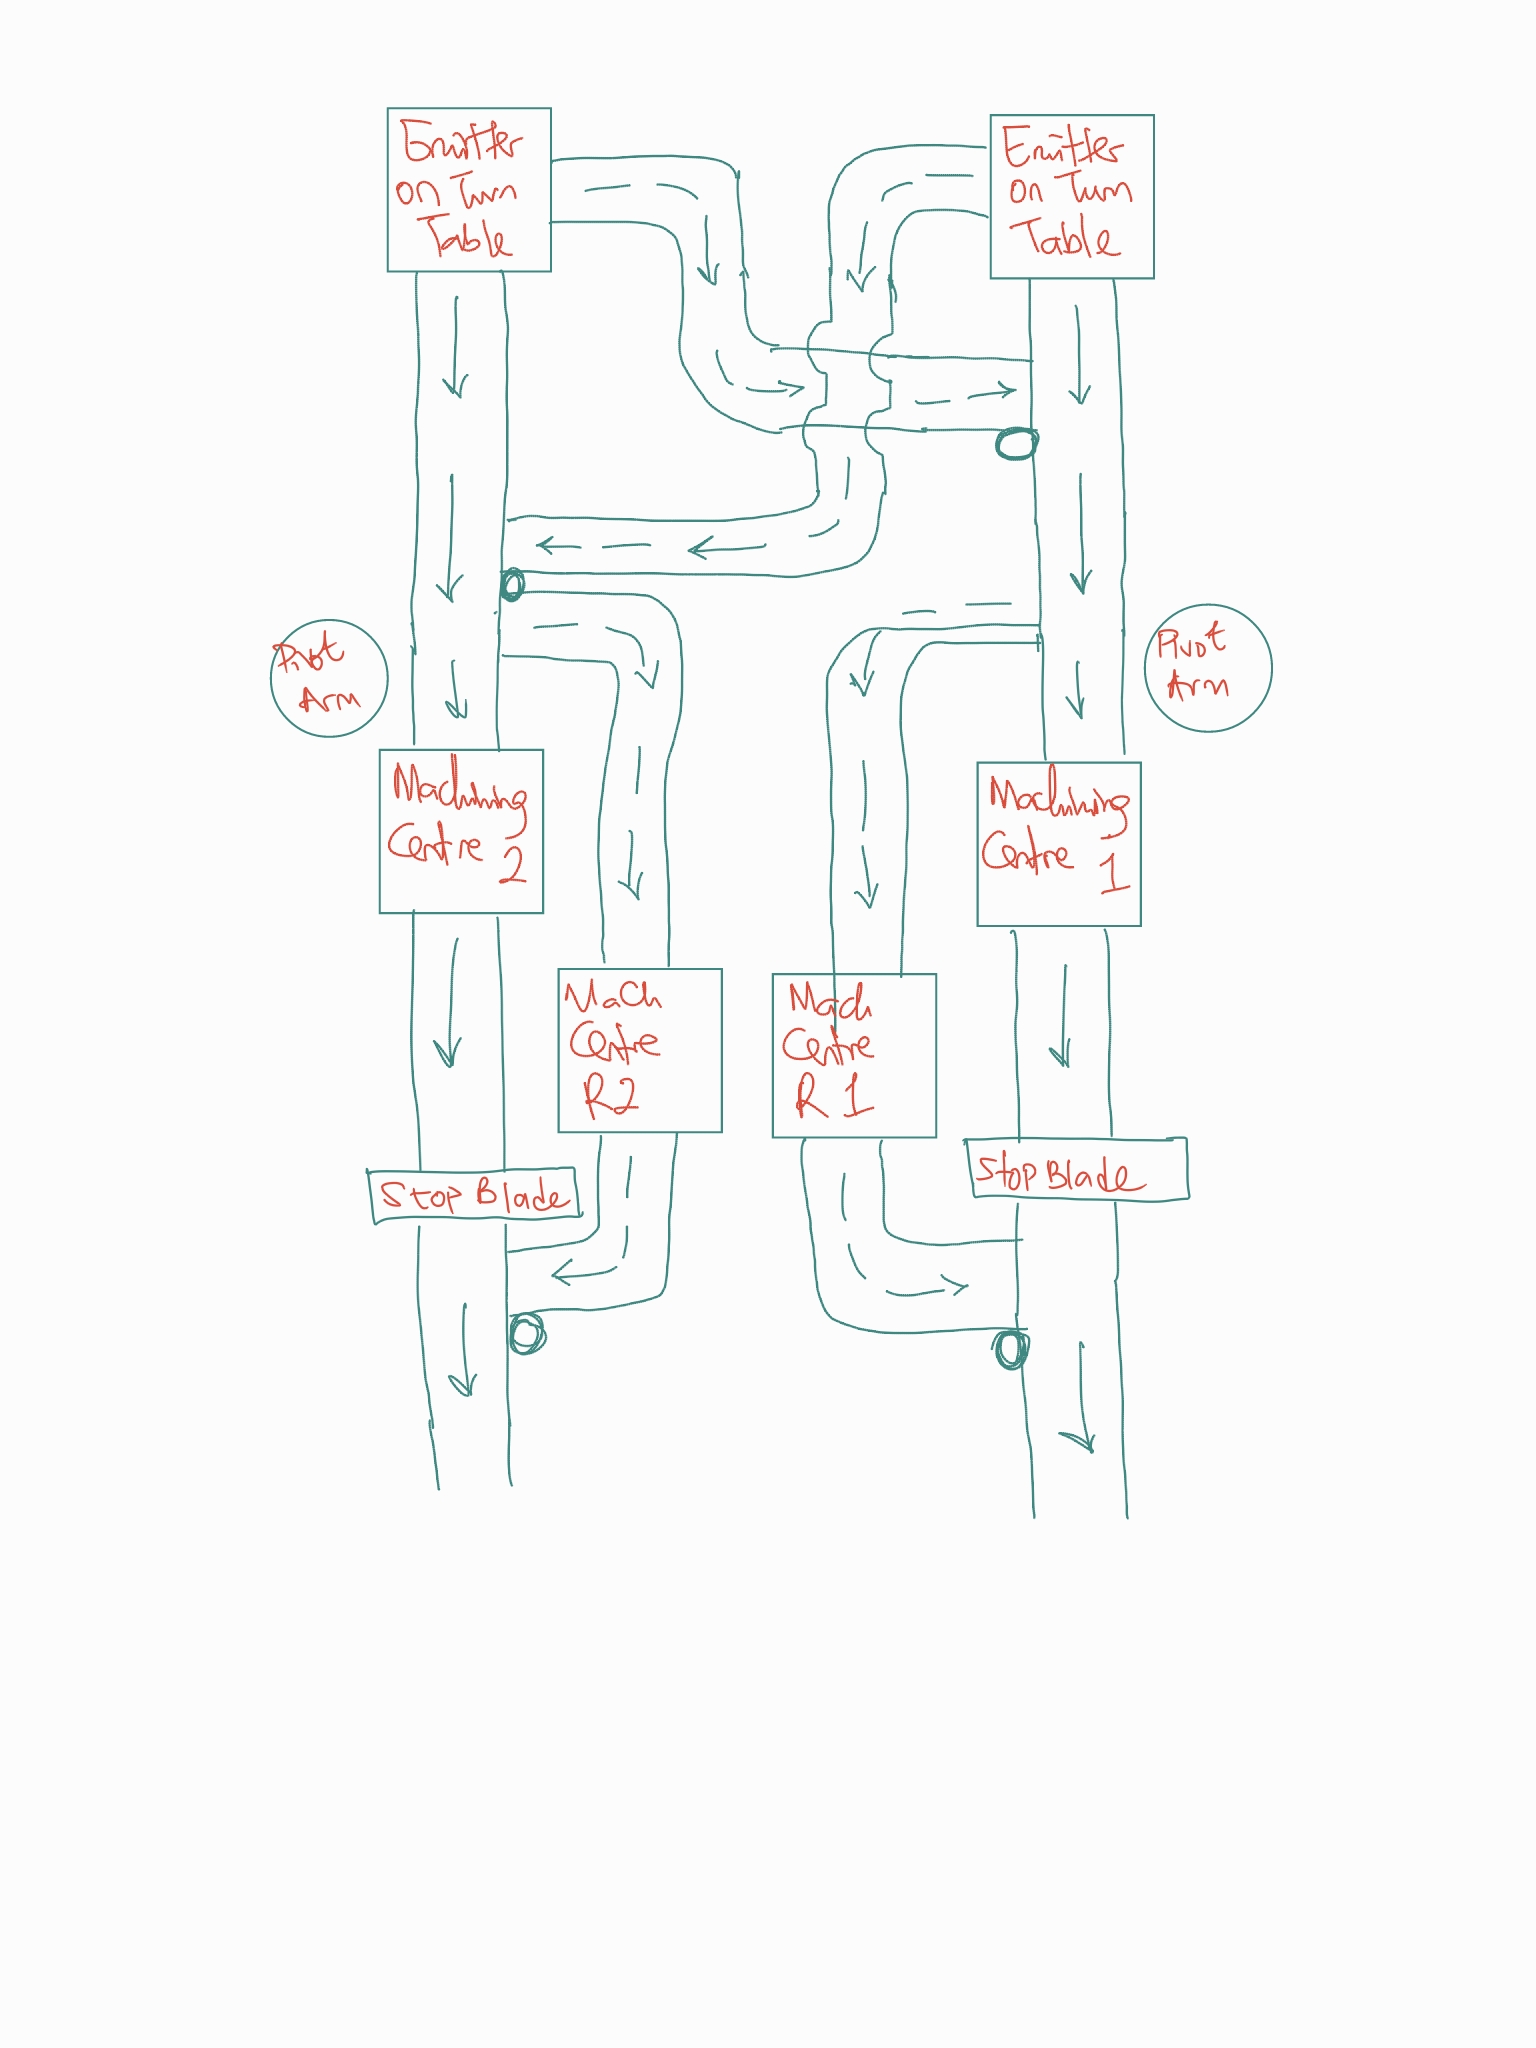 Emitter
on Turn
Table
Emitter
on Turn
Table
Pivot
Arm
Pivot
Arm
Machining
Centre 2
Machining
Centre 1
Mach
Centre
R2
Mach
Centre
R1
Stop Blade
Stop Blade